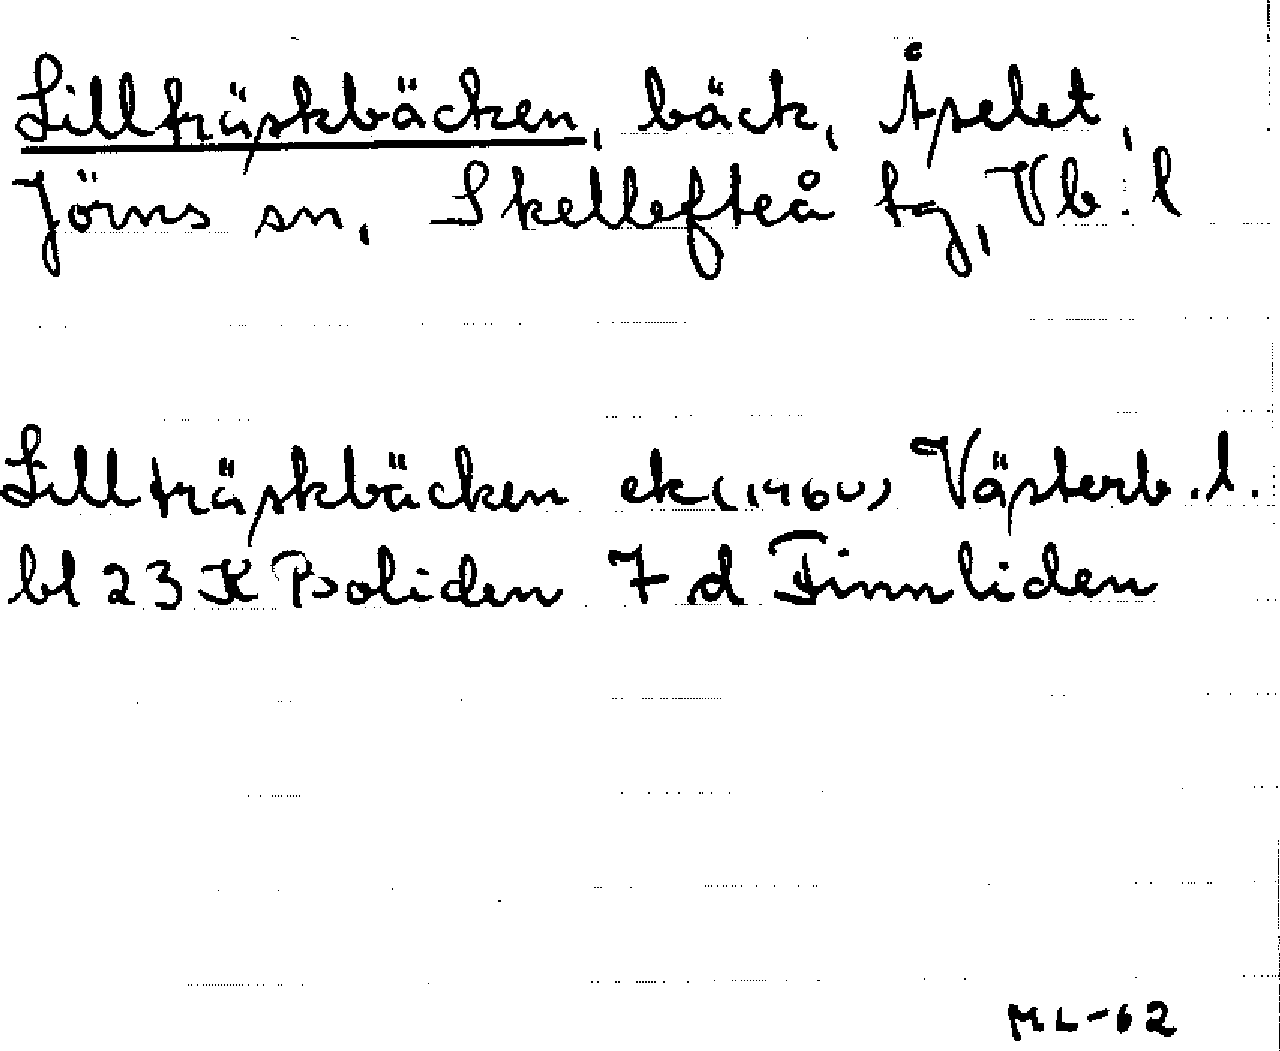 Lillträskbäcken, bäck, Åselet,
Jörns sn, Skellefteå tg, Vb:l
Lillträskbäcken ek (1960) Västerb.l.
bl 23 K Boliden 7 d Finnliden
ML-62